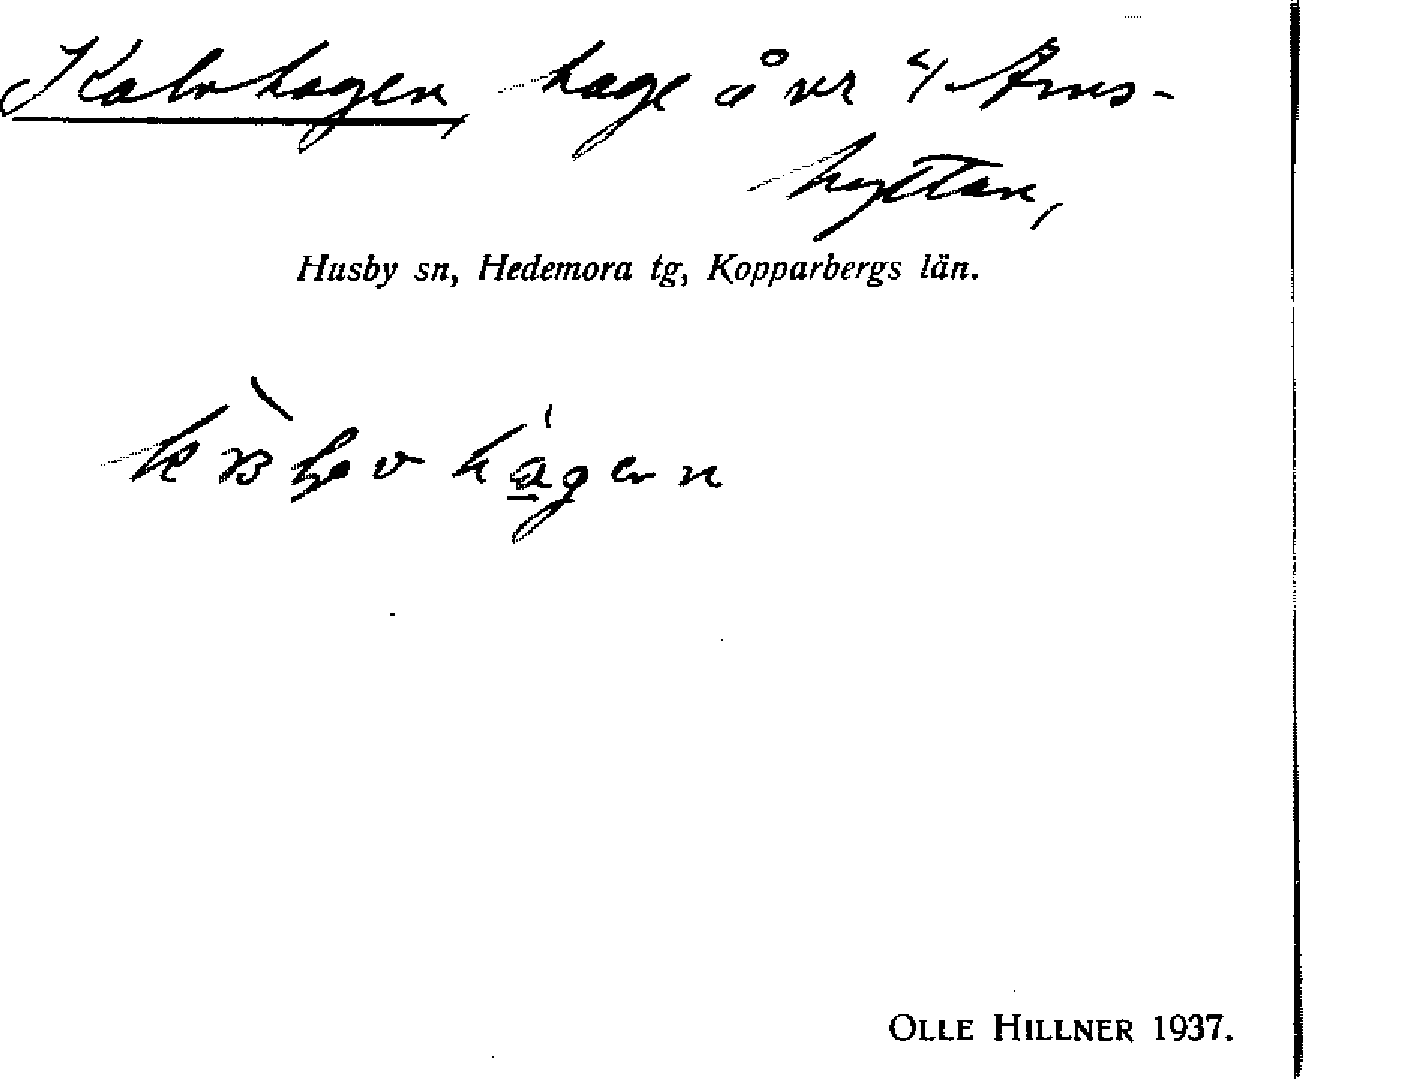 Kalvhagen, hage å nr 4 Arns-
hyttan,
Husby sn, Hedemora tg, Kopparbergs län.
OLLE HILLNER 1937.